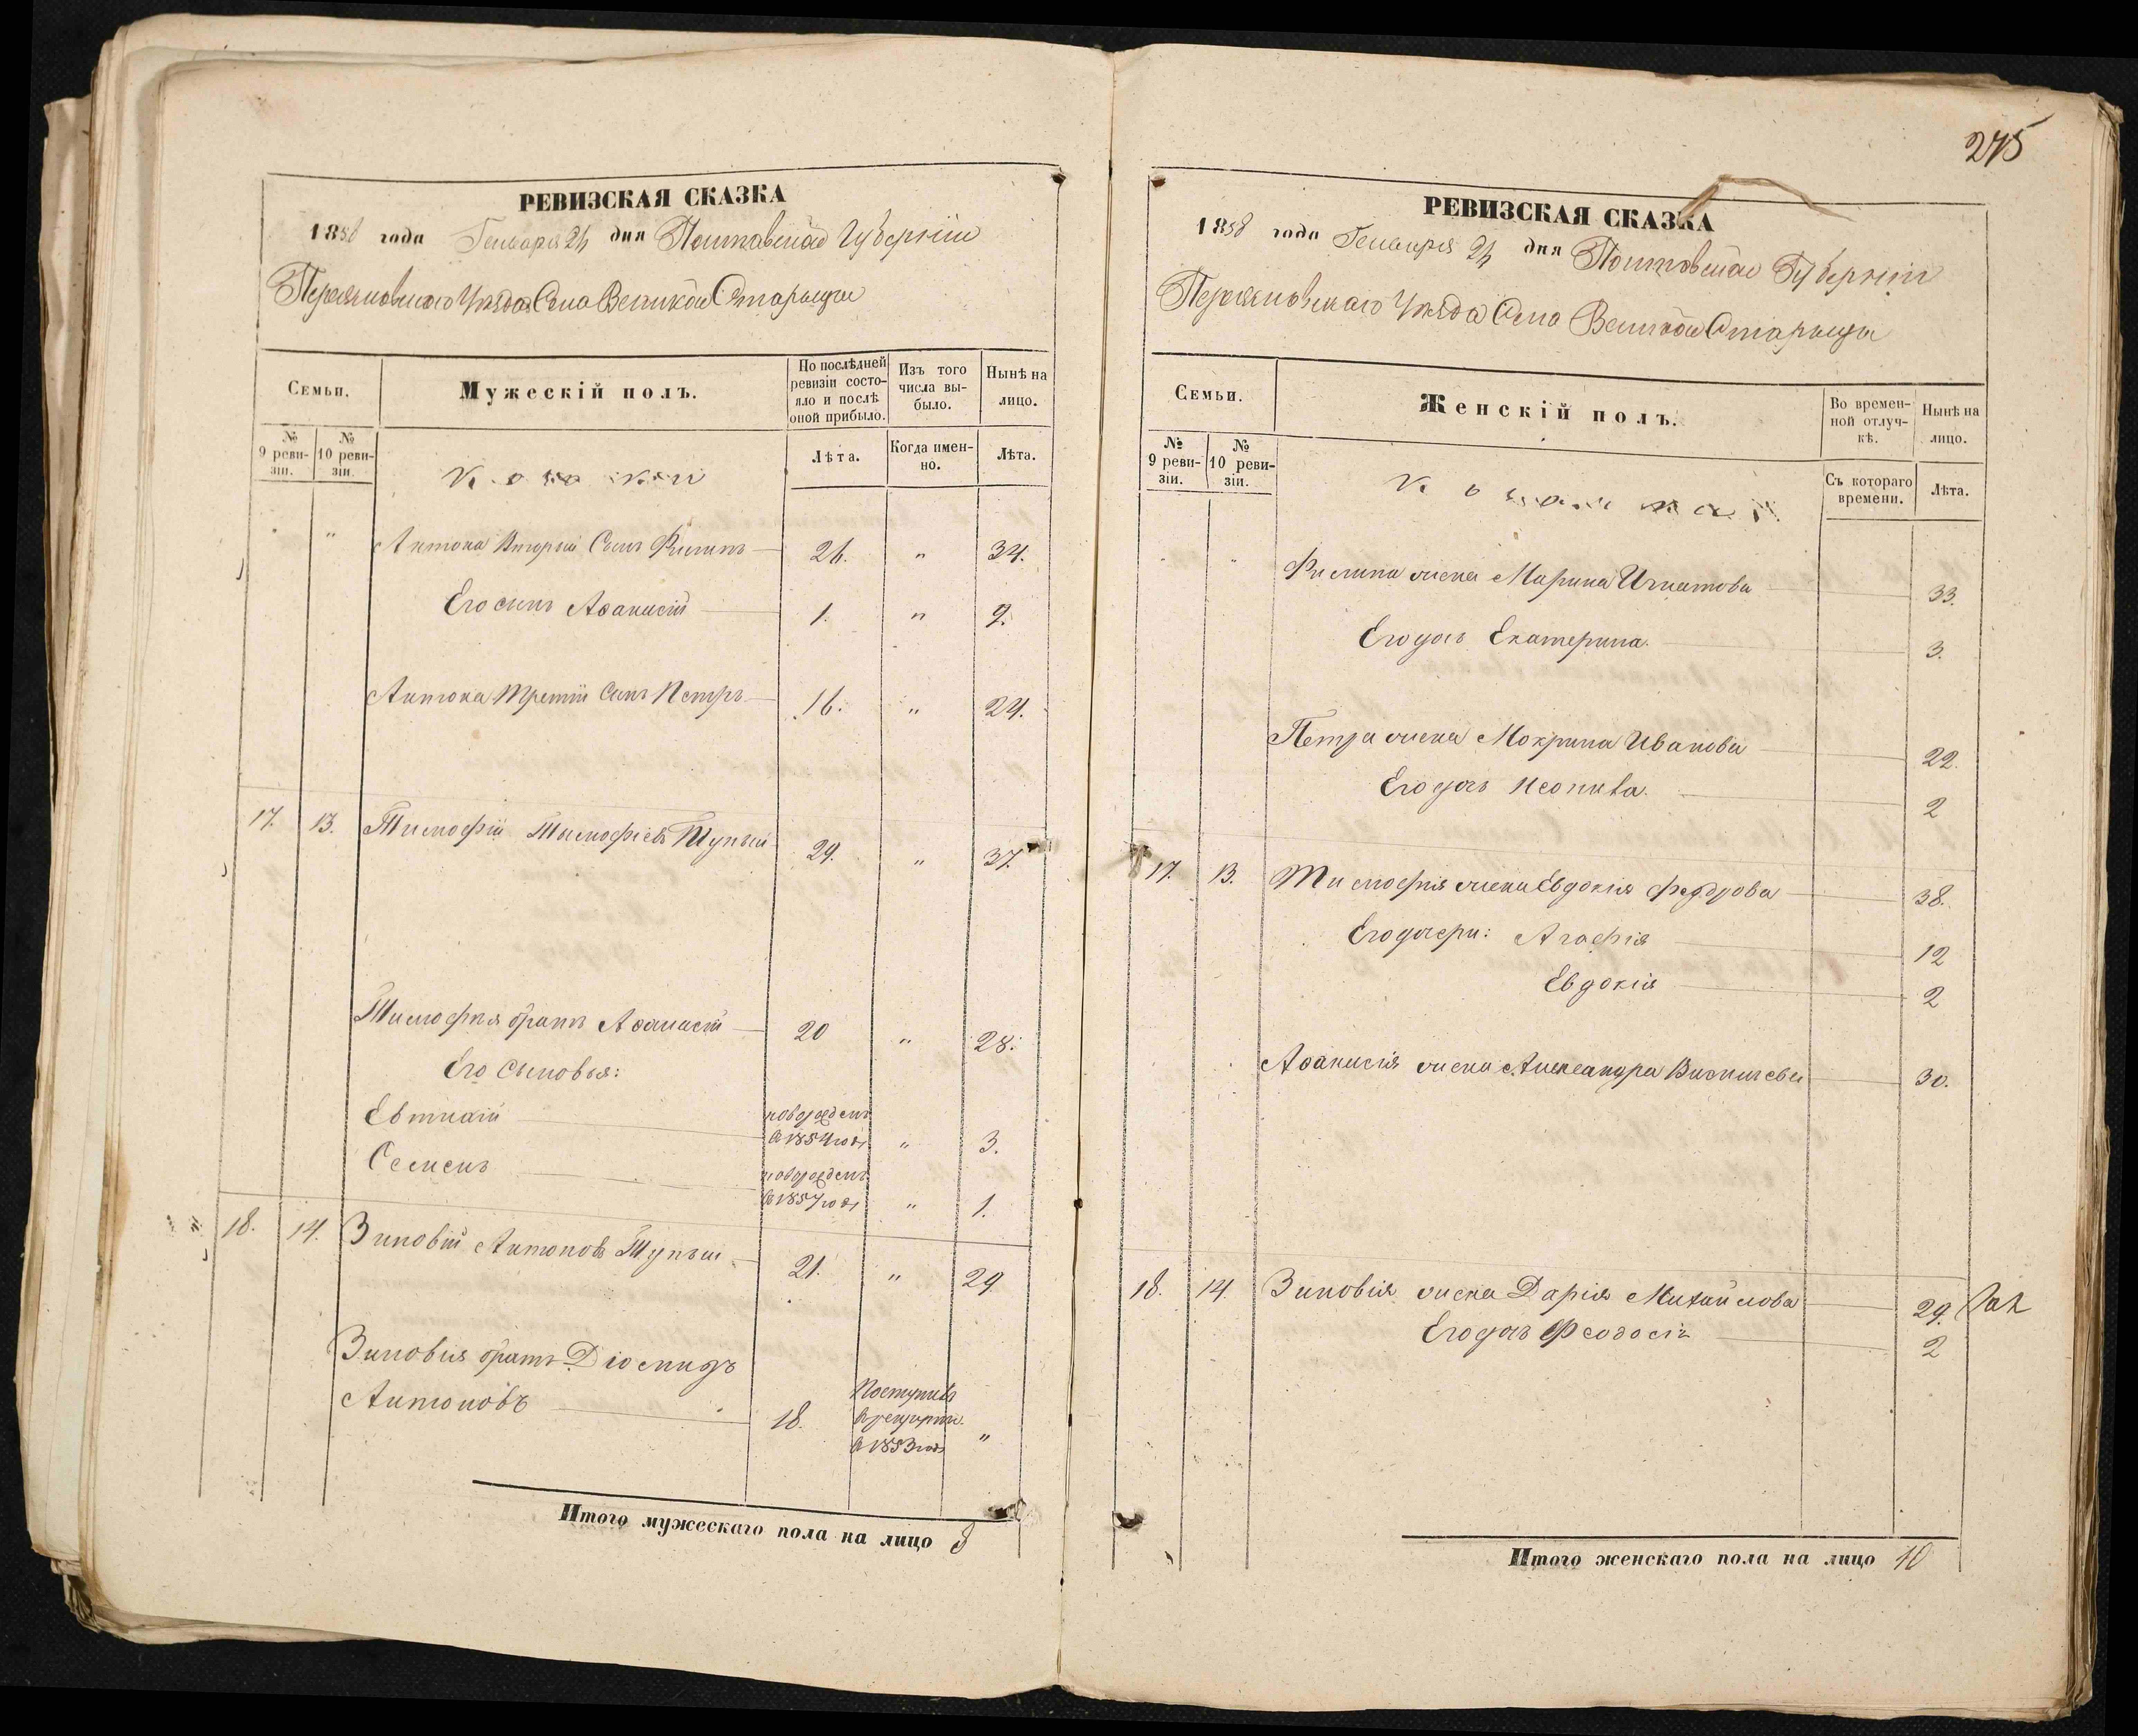 275
РЕВИЗСКАЯ СКАЗКА
1858 года Генваря 24 дня Полтавской Губерніи
Уезда Села Великой
Семьи.
Мужескій полъ.
По послѣдней ревизіи состо-
яло и послѣ
оной прибыло.
Изъ того
числа вы-
было.
Нынѣ на
лицо.
№
9 реви-
зіи.
№
10 реви-
зіи.
Лѣта.
Когда имен-
но.
Лѣта.
" Антона Вторый Сынъ Филипъ 26. " 34.
Его сынъ Аѳанасій 1. " 9.
Антона Третій Сынъ Петръ 16. " 24.
17. 13. Тимофій Тымофіевъ Тупый 29. " 37.
Тимофія братъ Аѳанасій 20 " 28.
Его Сыновья:
Евтихій новорожденъ
в 1854 года " 3.
Семенъ новорожденъ
в 1857 года " 1.
18. 14. Зиновій Антоновъ Тупый 21. " 29
Зиновія братъ Діомидъ
Антоновъ 18. Поступилъ
в рекруты
в 1853 года "
Итого мужескаго пола на лицо 8
РЕВИЗСКАЯ СКАЗКА
1858 года Генваря 24 дня Полтавской Губерніи
Уезда Села Великой
Семьи.
Женскій полъ.
Во времен-
ной отлуч-
кѣ.
Нынѣ на
лицо.
№
9 реви-
зіи.
№
10 реви-
зіи.
Съ котораго
времени.
Лѣта.
Филипа жена Марина Игнатова 33.
Его дочь Екатерина. 3.
Петра жена Мокрина Иванова 22.
Его дочь 2
17. 13. Тимофія жена Евдокія Федорова 38.
Его дочери: Агафія 12
Евдокія 2
Аѳанасія жена Александра Васильева 30.
18. 14. Зиновія жена Дарія Михайлова 29.
Его дочь Феодосія 2
Итого женскаго пола на лицо 10